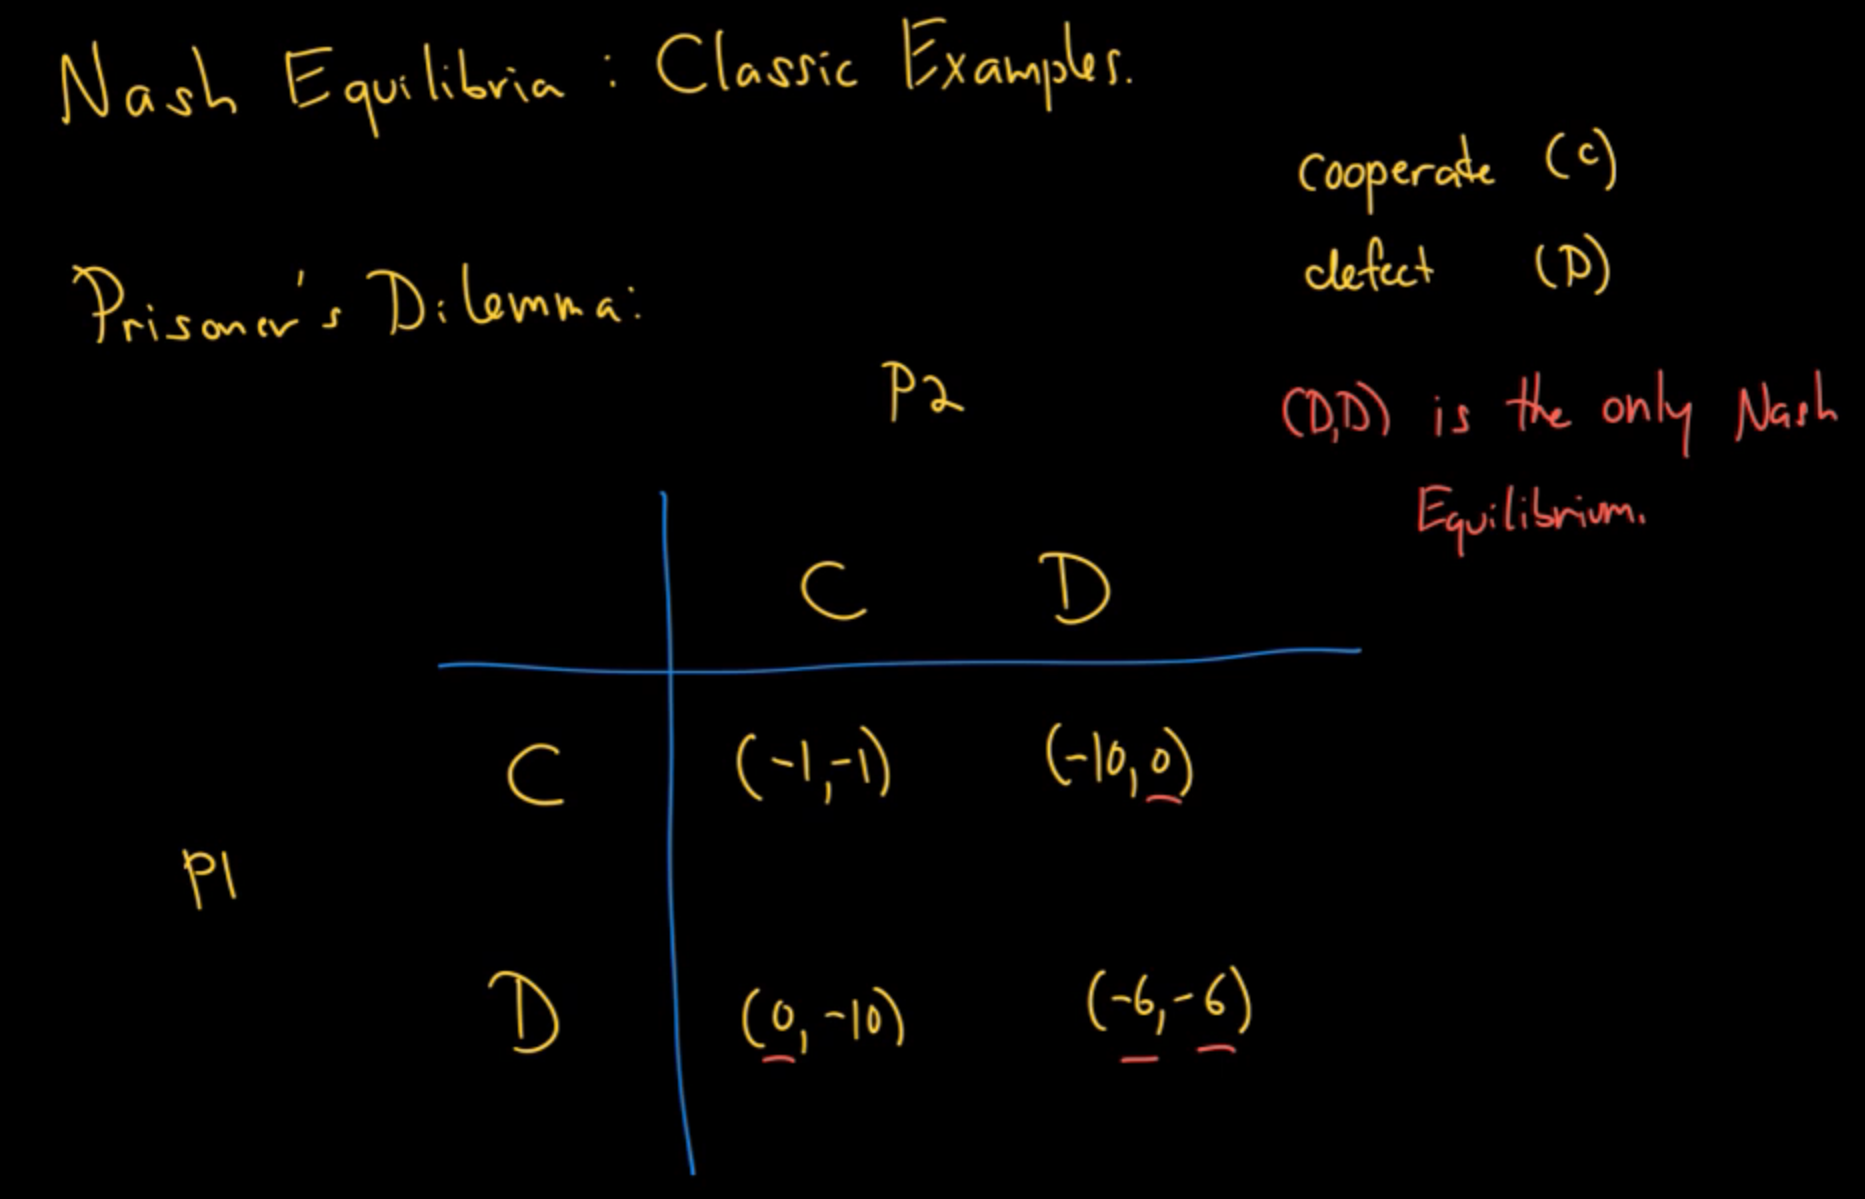 Nash Equilibria : Classic Examples.
cooperate (C)
defect (D)
Prisoner's Dilemma:
(D,D) is the only Nash
Equilibrium.
P2
C D
C (-1,-1) (-10,0)
P1
D (0,-10) (-6,-6)